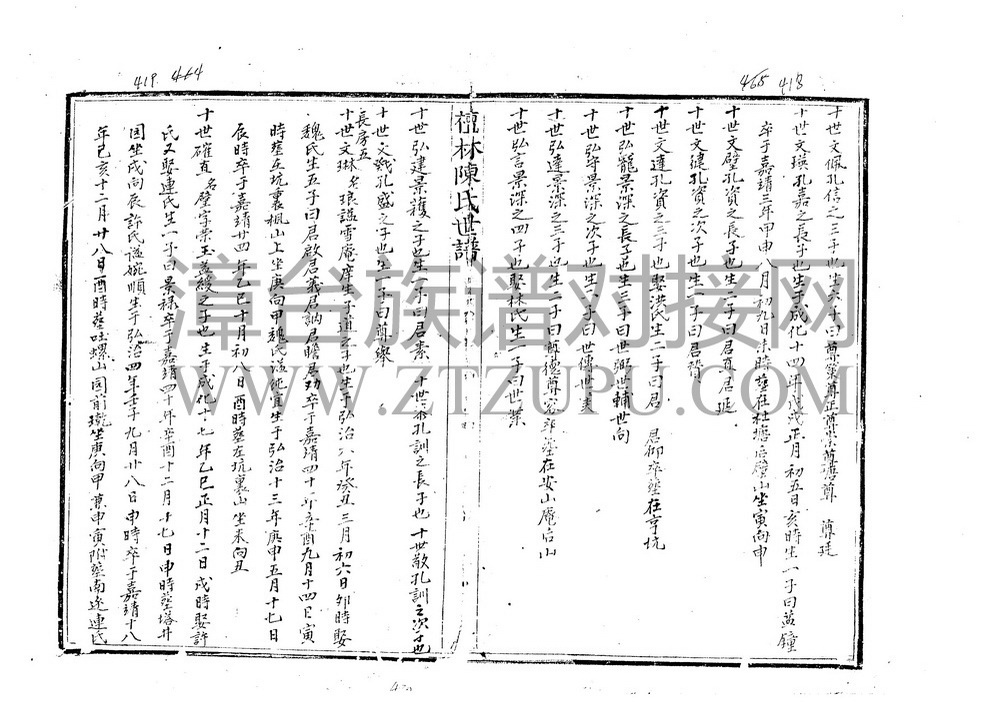 465 418
十世文佩孔信之三子也生六子曰尊榮尊正尊崇尊憑尊 尊廷
十世文瑛孔嘉之長子也生于成化十四年戊戌正月初五日亥時生一子曰益鐘
卒于嘉靖三年甲申八月初九日未時葬在社壇后壁山坐寅向申
十世文壁孔資之長子也生二子曰君真君延
十世文建孔資之次子也生一子曰君督
十世文達孔資之三子也娶洪氏生二子曰君 君卿卒葬在亨坑
十世弘龍景深之長子也生三子曰世弼世輔世向
十世弘守景深之次子也生二子曰世傳世
十世弘達景深之三子也生二子曰尊德尊 卒葬在安山庵后山
十世弘言景深之四子也娶林氏生一子曰世業
檀林陳氏世譜
十世弘建景 之子也生一子曰君素 十世 孔訓之長子也 十世敬孔訓之次子也
十世文 孔盛之子也生一子曰尊舉
長房五
十世文琳名琅謚雪庵摩生子道之子也生于弘治六年癸丑三月初六日卯時娶
魏氏生五子曰君啟君義君訥君瞻君劝卒于嘉靖四十年辛酉九月十四日寅
時葬左坑裏楓山上坐庚向甲魏氏謚純宜生于弘治十三年庚申五月十七日
辰時卒于嘉靖廿四年乙巳十月初八日酉時葬左坑裏山坐未向丑
十世確直名壁字榮玉益綬之子也生于成化十七年乙巳正月十二日戌時娶許
氏又娶連氏生一子曰景祿卒于嘉靖四十年辛酉十二月十七日申時葬塔井
園坐戌向辰許氏謚婉順生于弘治四年壬子九月廿八日申時卒于嘉靖十八
年己亥十二月廿八日酉時葬吐螺山園前坑坐庚向甲兼申寅附葬南边連氏
419 464
漳台族谱对接网
WWW.ZTZUPU.COM